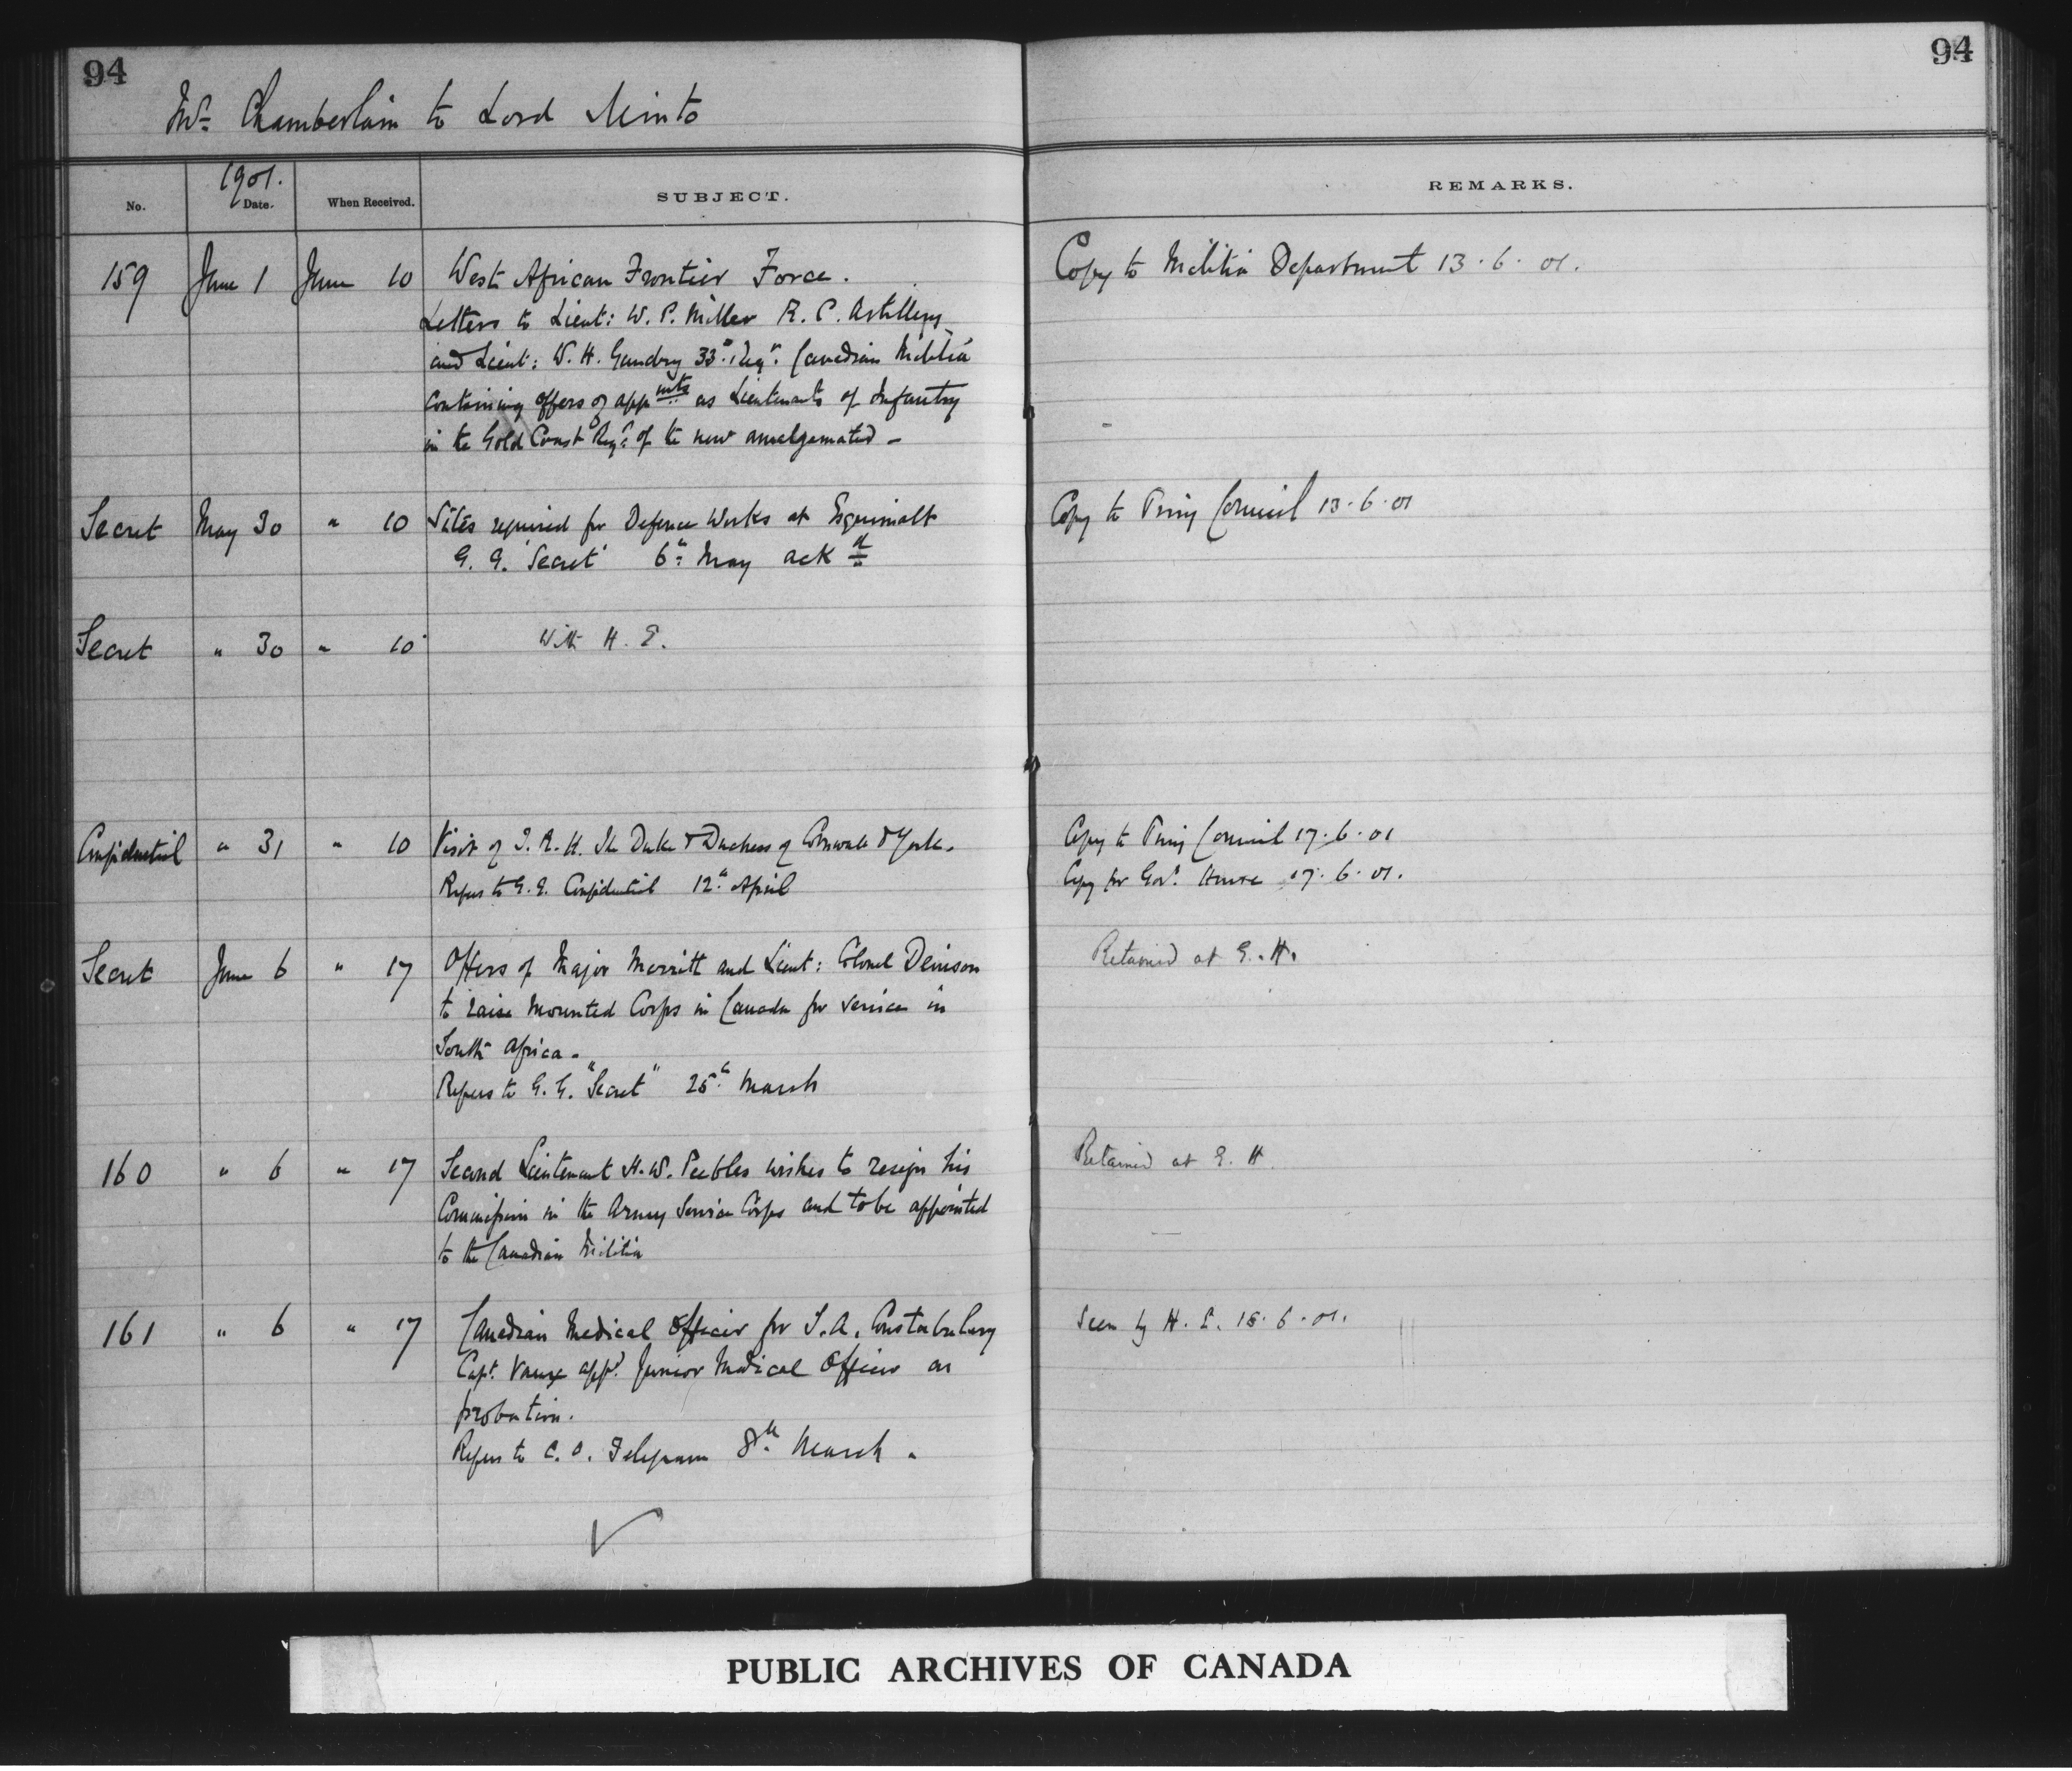 94
94
Mr. Chamberlain to Lord Minto
1901.
No.
Date.
When Received.
SUBJECT.
REMARKS.
159 June 1 June 10 West African Frontier Force. Copy to Militia Department 13.6.01.
Letters to Lieut: W. P. Miller R. C. Artillery
and Lieut: W. H. Gaudry 33rd Regt. Canadian Militia
containing offers of appmts as Lieutenants of Infantry
in the Gold Coast Regt. of the new amalgamated -
Secret May 30 " 10 Sites required for Defence Works at Esquimalt Copy to Privy Council 13.6.01
G. G. 'Secret' 6th May ackd
Secret " 30 " 10 With H. E.
Confidential " 31 " 10 Visit of T. R. H. The Duke & Duchess of Cornwall & York. Copy to Privy Council 17.6.01
Refers to G. G. Confidential 12th April Copy for Govt. House 17.6.01.
Secret June 6 " 17 Offers of Major Merritt and Lieut: Colonel Denison Retained at G. H.
to raise Mounted Corps in Canada for service in
South Africa.
Refers to G. G. "Secret" 25th March
160 " 6 " 17 Second Lieutenant H. W. Peebles wishes to resign his Retained at G. H.
Commission in the Army Service Corps and to be appointed
to the Canadian Militia
161 " 6 " 17 Canadian Medical Officer for S. A. Constabulary Seen by H. E. 18.6.01.
Capt. Vaux appd. Junior Medical Officer on
probation.
Refers to C. O. Telegram 8th March.
PUBLIC ARCHIVES OF CANADA